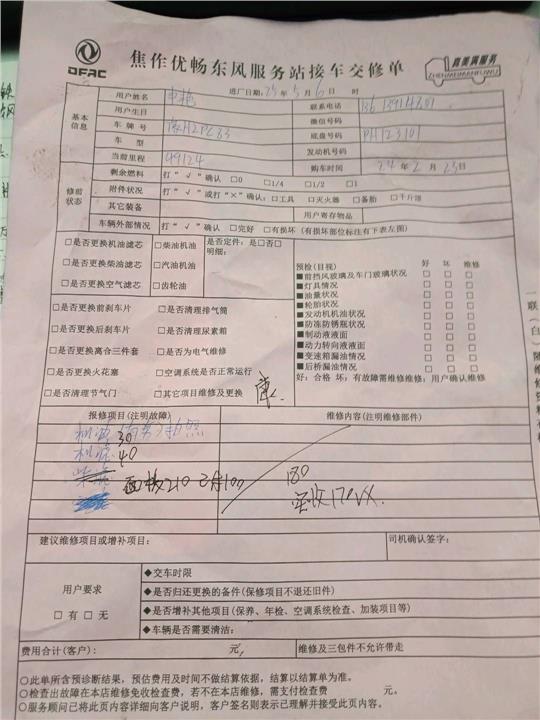 DFAC
焦作优畅东风服务站接车交修单
真美满服务
ZHENMEIMANFUWU
基本信息
用户姓名 进厂日期：25年5月6日 时
用户生日 联系电话
微信号码
车牌号 豫H2PC33 底盘号码 PH123101
车型 发动机号码
当前里程 49124 购车时间 24年2月23日
修前状态
剩余燃料 打“√”确认 □0 □1/4 □1/2 □1
附件状况 打“√”或打“×”确认：□工具 □灭火器 □备胎 □千斤顶
其它装备 用户寄存物品
车辆外部情况 打“√”确认 □完好 □有损坏（有损坏部位标注有下表左图）
□是否更换机油滤芯 □柴油机油 是否定件：是□否□
明细：
□是否更换柴油滤芯 □汽油机油
□是否更换空气滤芯 □齿轮油
预检(目视) 好 坏 维修
■前挡风玻璃及车门玻璃状况 □ □ □
■灯具情况 □ □ □
■油量状况 □ □ □
■轮胎状况 □ □ □
■发动机机油状况 □ □ □
■防冻防锈瓶状况 □ □ □
■制动液液面 □ □ □
■动力转向液液面 □ □ □
■变速箱漏油情况 □ □ □
■后桥漏油情况 □ □ □
好：合格 坏：有故障需维修维修：用户确认维修
□是否更换前刹车片 □是否清理排气筒
□是否更换后刹车片 □是否清理尿素箱
□是否更换离合三件套 □是否为电气维修
□是否更换火花塞 □空调系统是否正常运行
□是否清理节气门 □其它项目维修及更换
报修项目(注明故障) 维修内容(注明维修部件)
机滤 30
40
210 100 180
实收170
建议维修项目或增补项目： 司机确认签字：
用户要求
□有 □无
◆交车时限
◆是否归还更换的备件(保修项目不退还旧件)
◆是否增补其他项目(保养、年检、空调系统检查、加装项目等)
◆车辆是否需要清洁：
费用合计(客户)： 元， 维修及三包件不允许带走
○此单所含预诊断结果，预估费用及时间不做结算依据，结算以结算单为准。
○检查出故障在本店维修免收检查费，若不在本店维修，需支付检查费 元。
○服务顾问已将此页内容详细向客户说明，客户签名则表示已理解并接受此页内容。